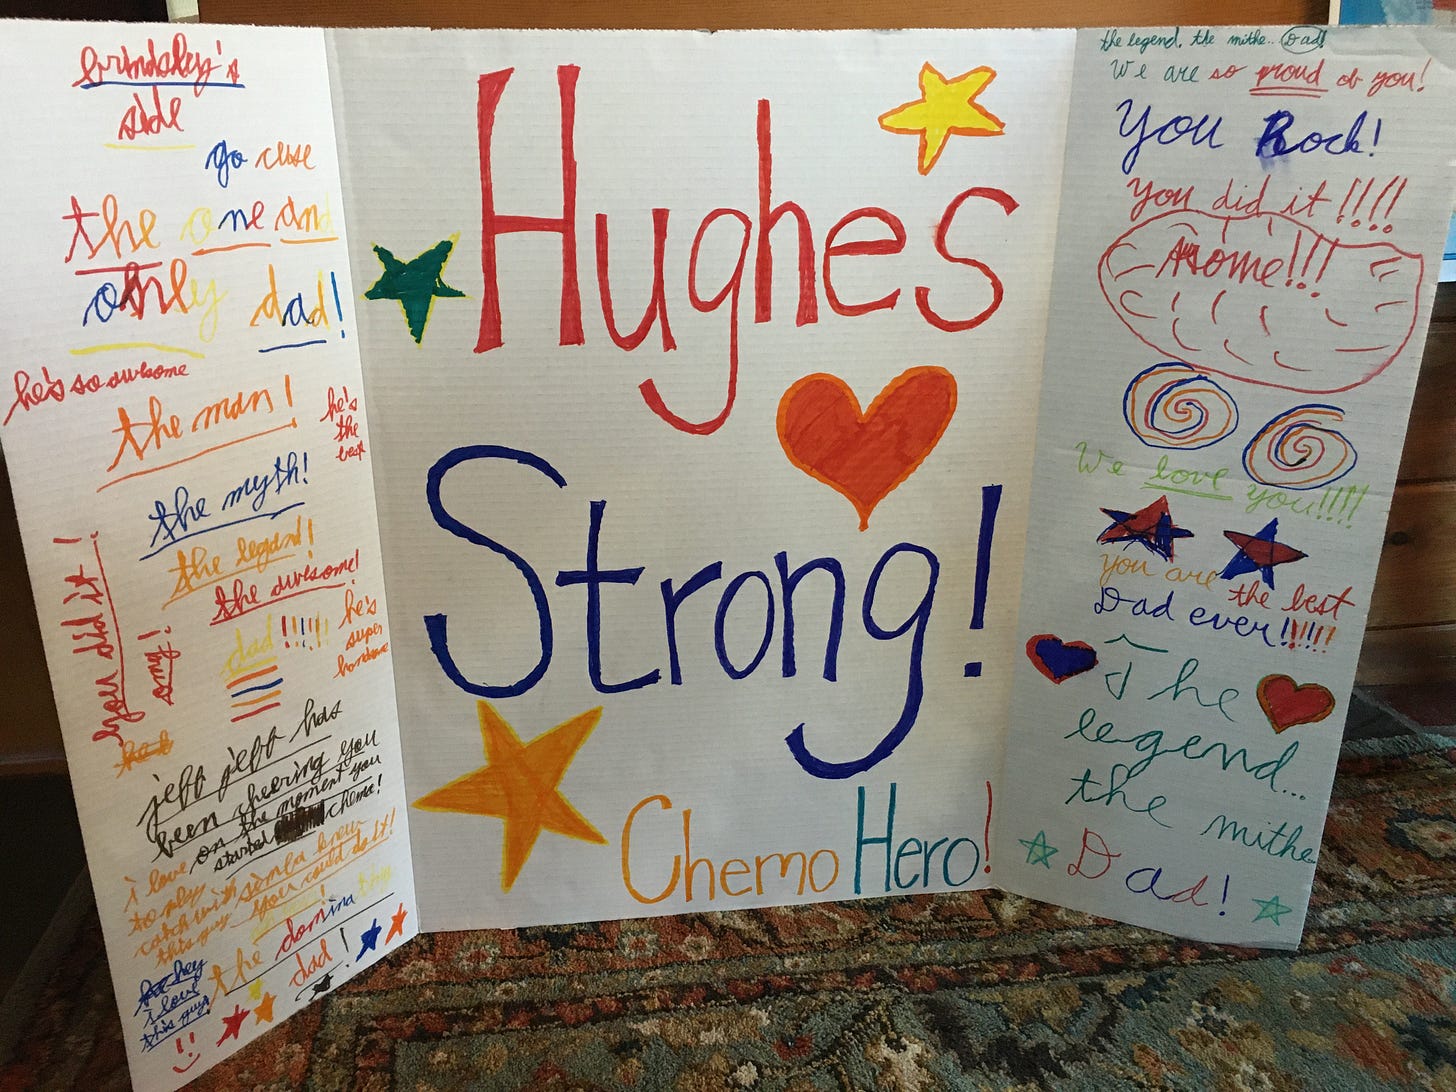 brindsley's
side
go cuse
the one and
only dad!
he's so awesome
the man!
he's
the
best
the myth!
the legend!
the awesome!
dad!!!!!!
he's
super
you did it!
omg!
jeff jeff has
been cheering you
on the moment you
started chemo!
i love simba knew
to play you could do it!
catch with
this guy
the domina
dad!
hey
i love
this guy!
Hughes
Strong!
Chemo Hero!
the legend, the mithe... Dad!
We are so proud of you!
You Rock!
You did it!!!!
Home!!!
We love you!!!!
you are the best
Dad ever!!!!!!
The
legend...
the mithe
Dad!